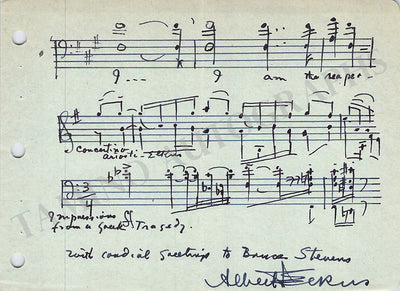 I... I am the reaper
Concertino
Ariosti-Elkus
3/4
Impressions
from a Greek Tragedy.
with cordial greetings to Bruce Stevens
Albert Elkus
TAMINO AUTOGRAPHS